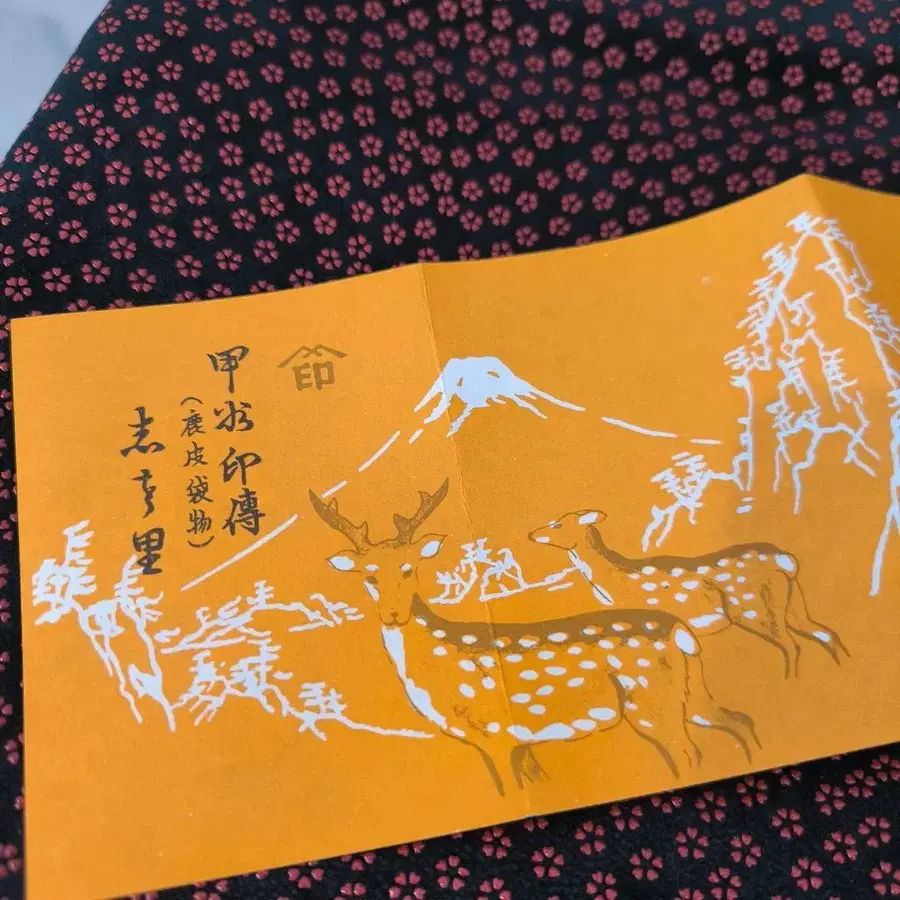 印
甲州印傳
（鹿皮袋物）
志まや里